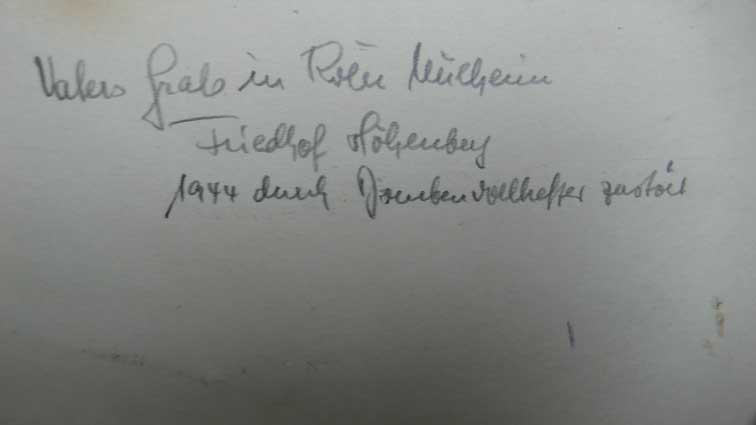 Vaters Grab in Köln Mülheim
Friedhof Höhenberg
1944 durch Bombenvolltreffer zerstört